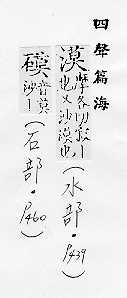 四聲篇海
漠 摩各切
也又沙漠也
（水部·P439）
音莫
沙丨
（石部·P460）